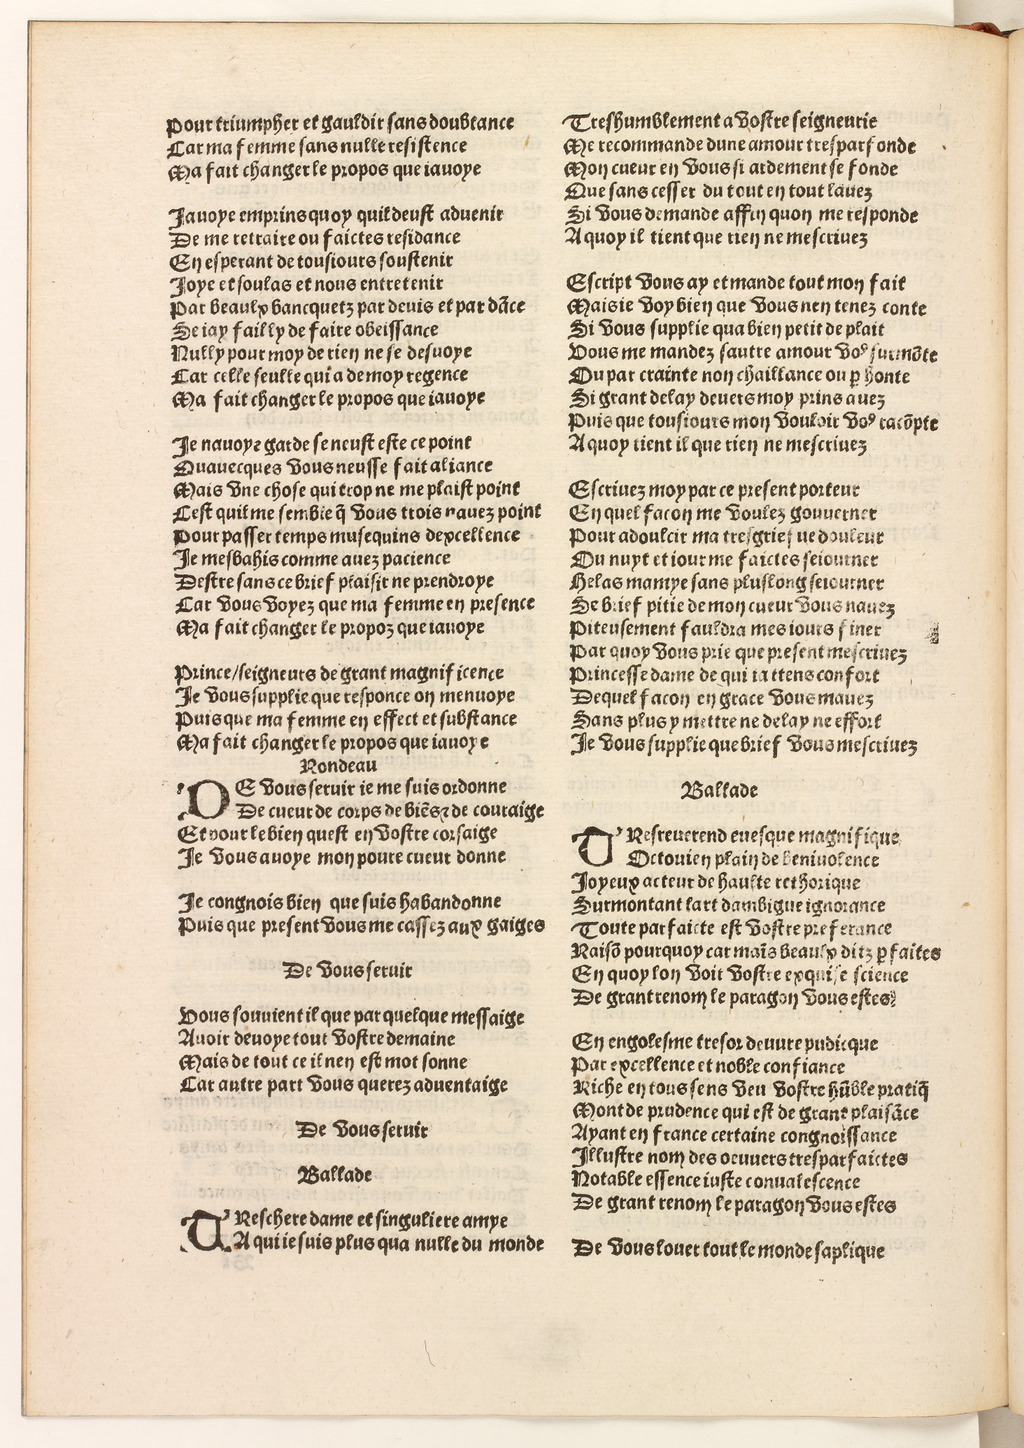 Pour triumpher et gauldir sans doubtance
Car ma femme sans nulle resistence
Ma fait changer le propos que iauoye
Jauoye emprins quoy quil deust aduenir
De me retraire ou faictes residance
En esperant de tousiours soustenir
Joye et soulas et nous entretenir
Par beaulx bancquetz par deuis et par dāce
Se iay failly de faire obeissance
Nully pour moy de rien ne se desuoye
Car celle seulle qui a de moy regence
Ma fait changer le propos que iauoye
Je nauoye garde se neust este ce point
Quauecques vous neusse fait aliance
Mais vne chose qui trop ne me plaist point
Cest quil me semble q̄ vous trois nauez point
Pour passer temps musequins dexcellence
Je mesbahis comme auez pacience
Destre sans ce brief plaisir ne prendroye
Car vous voyez que ma femme en presence
Ma fait changer le propoz que iauoye
Prince/seigneurs de grant magnificence
Je vous supplie que responce on menuoye
Puis que ma femme en effect et substance
Ma fait changer le propos que iauoye
Rondeau
DE vous seruir ie me suis ordonne
De cueur de corps de biēs ⁊ de couraige
Et pour le bien quest en vostre corsaige
Je vous auoye mon poure cueur donne
Je congnois bien que suis habandonne
Puis que present vous me cassez aux gaiges
De vous seruir
Vous souuient il que par quelque messaige
Auoir deuoye tout vostre demaine
Mais de tout ce il nen est mot sonne
Car autre part vous querez aduentaige
De vous seruir
Ballade
TReschere dame et singuliere amye
A qui ie suis plus qua nulle du monde
Treshumblement a vostre seigneurie
Me recommande dune amour tresparfonde
Mon cueur en vous si ardement se fonde
Que sans cesser du tout en tout lauez
Si vous demande affin quon me responde
A quoy il tient que rien ne mescriuez
Escript vous ay et mande tout mon fait
Mais ie voy bien que vous nen tenez conte
Si vous supplie qua bien petit de plait
Vous me mandez sautre amour voꝰ surmōte
Ou par crainte non chaillance ou ꝑ honte
Si grant delay deuers moy prins auez
Puis que tousiours mon vouloir voꝰ racōpte
A quoy tient il que rien ne mescriuez
Escriuez moy par ce present porteur
En quel facon me voulez gouuerner
Pour adoulcir ma tresgriefue douleur
Ou nuyt et iour me faictes seiourner
Helas mamye sans plus long seiourner
Se brief pitie de mon cueur vous nauez
Piteusement fauldra mes iours finer
Par quoy vous prie que present mescriuez
Princesse dame de qui iattens confort
De quel facon en grace vous mauez
Sans plus y mettre ne delay ne effort
Je vous supplie que brief vous mescriuez
Ballade
TResreuerend euesque magnifique
Octouien plain de beniuolence
Joyeux acteur de haulte rethorique
Surmontant lart dambigue ignorance
Toute parfaicte est vostre preferance
Raisō pourquoy car mais beaulx ditz ꝑfaites
En quoy lon voit vostre exquise science
De grant renom le paragon vous estes
En engolesme tresor deuure pudicque
Par excellence et noble confiance
Riche en tous sens veu vostre hūble pratiq̄
Mont de prudence qui est de grant plaisāce
Ayant en france certaine congnoissance
Illustre nom des oeuuers tresparfaictes
Notable essence iuste conualescence
De grant renom le paragon vous estes
De vous louer tout le monde saplique